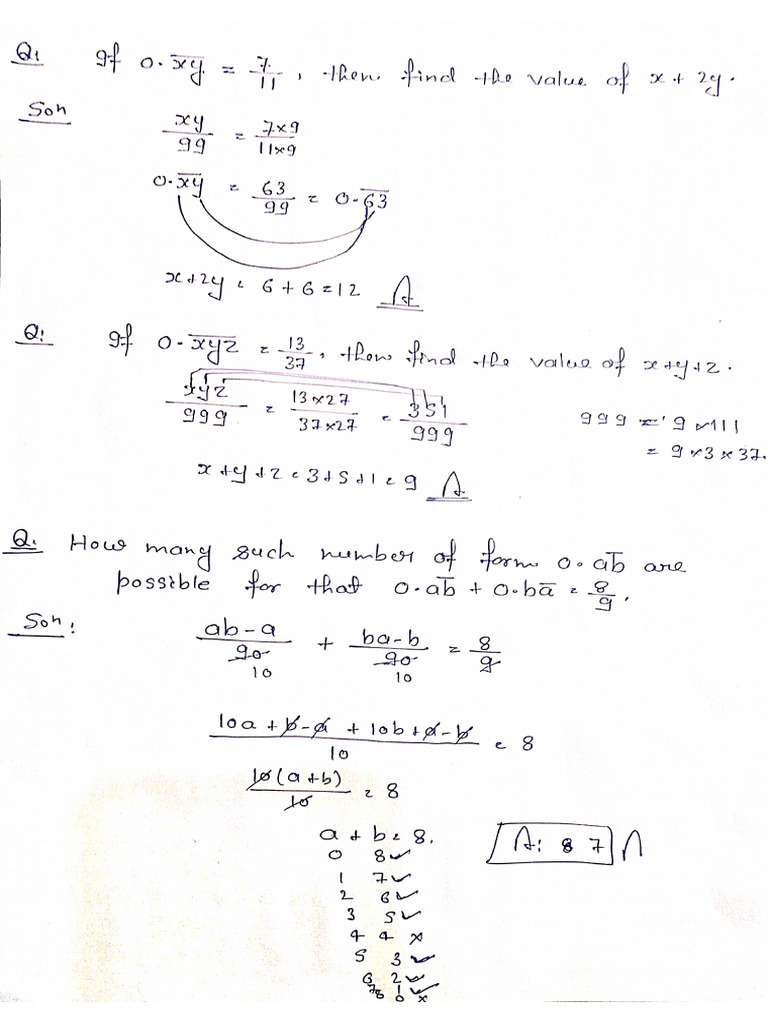 Q: If 0.x̅y̅ = 7/11, then find the value of x + 2y.
Soln
xy/99 = 7×9/11×9
0.x̅y̅ = 63/99 = 0.6̅3̅
x+2y = 6 + 6 = 12 A
Q: If 0.x̅y̅z̅ = 13/37, then find the value of x+y+z.
xyz/999 = 13×27/37×27 = 351/999
999 = 9×111
= 9×3×37.
x+y+z = 3+5+1 = 9 A
Q. How many such number of form 0.ab̅ are
possible for that 0.ab̅ + 0.ba̅ = 8/9.
Soln:
ab-a/90 + ba-b/90 = 8/9
10 10
10a+b-a + 10b+a-b/10 = 8
10(a+b)/10 = 8
a + b = 8.
A: 7
0 8✓
1 7✓
2 6✓
3 5✓
4 4 ×
5 3✓
6 2✓
7 1✓
8 0 ×